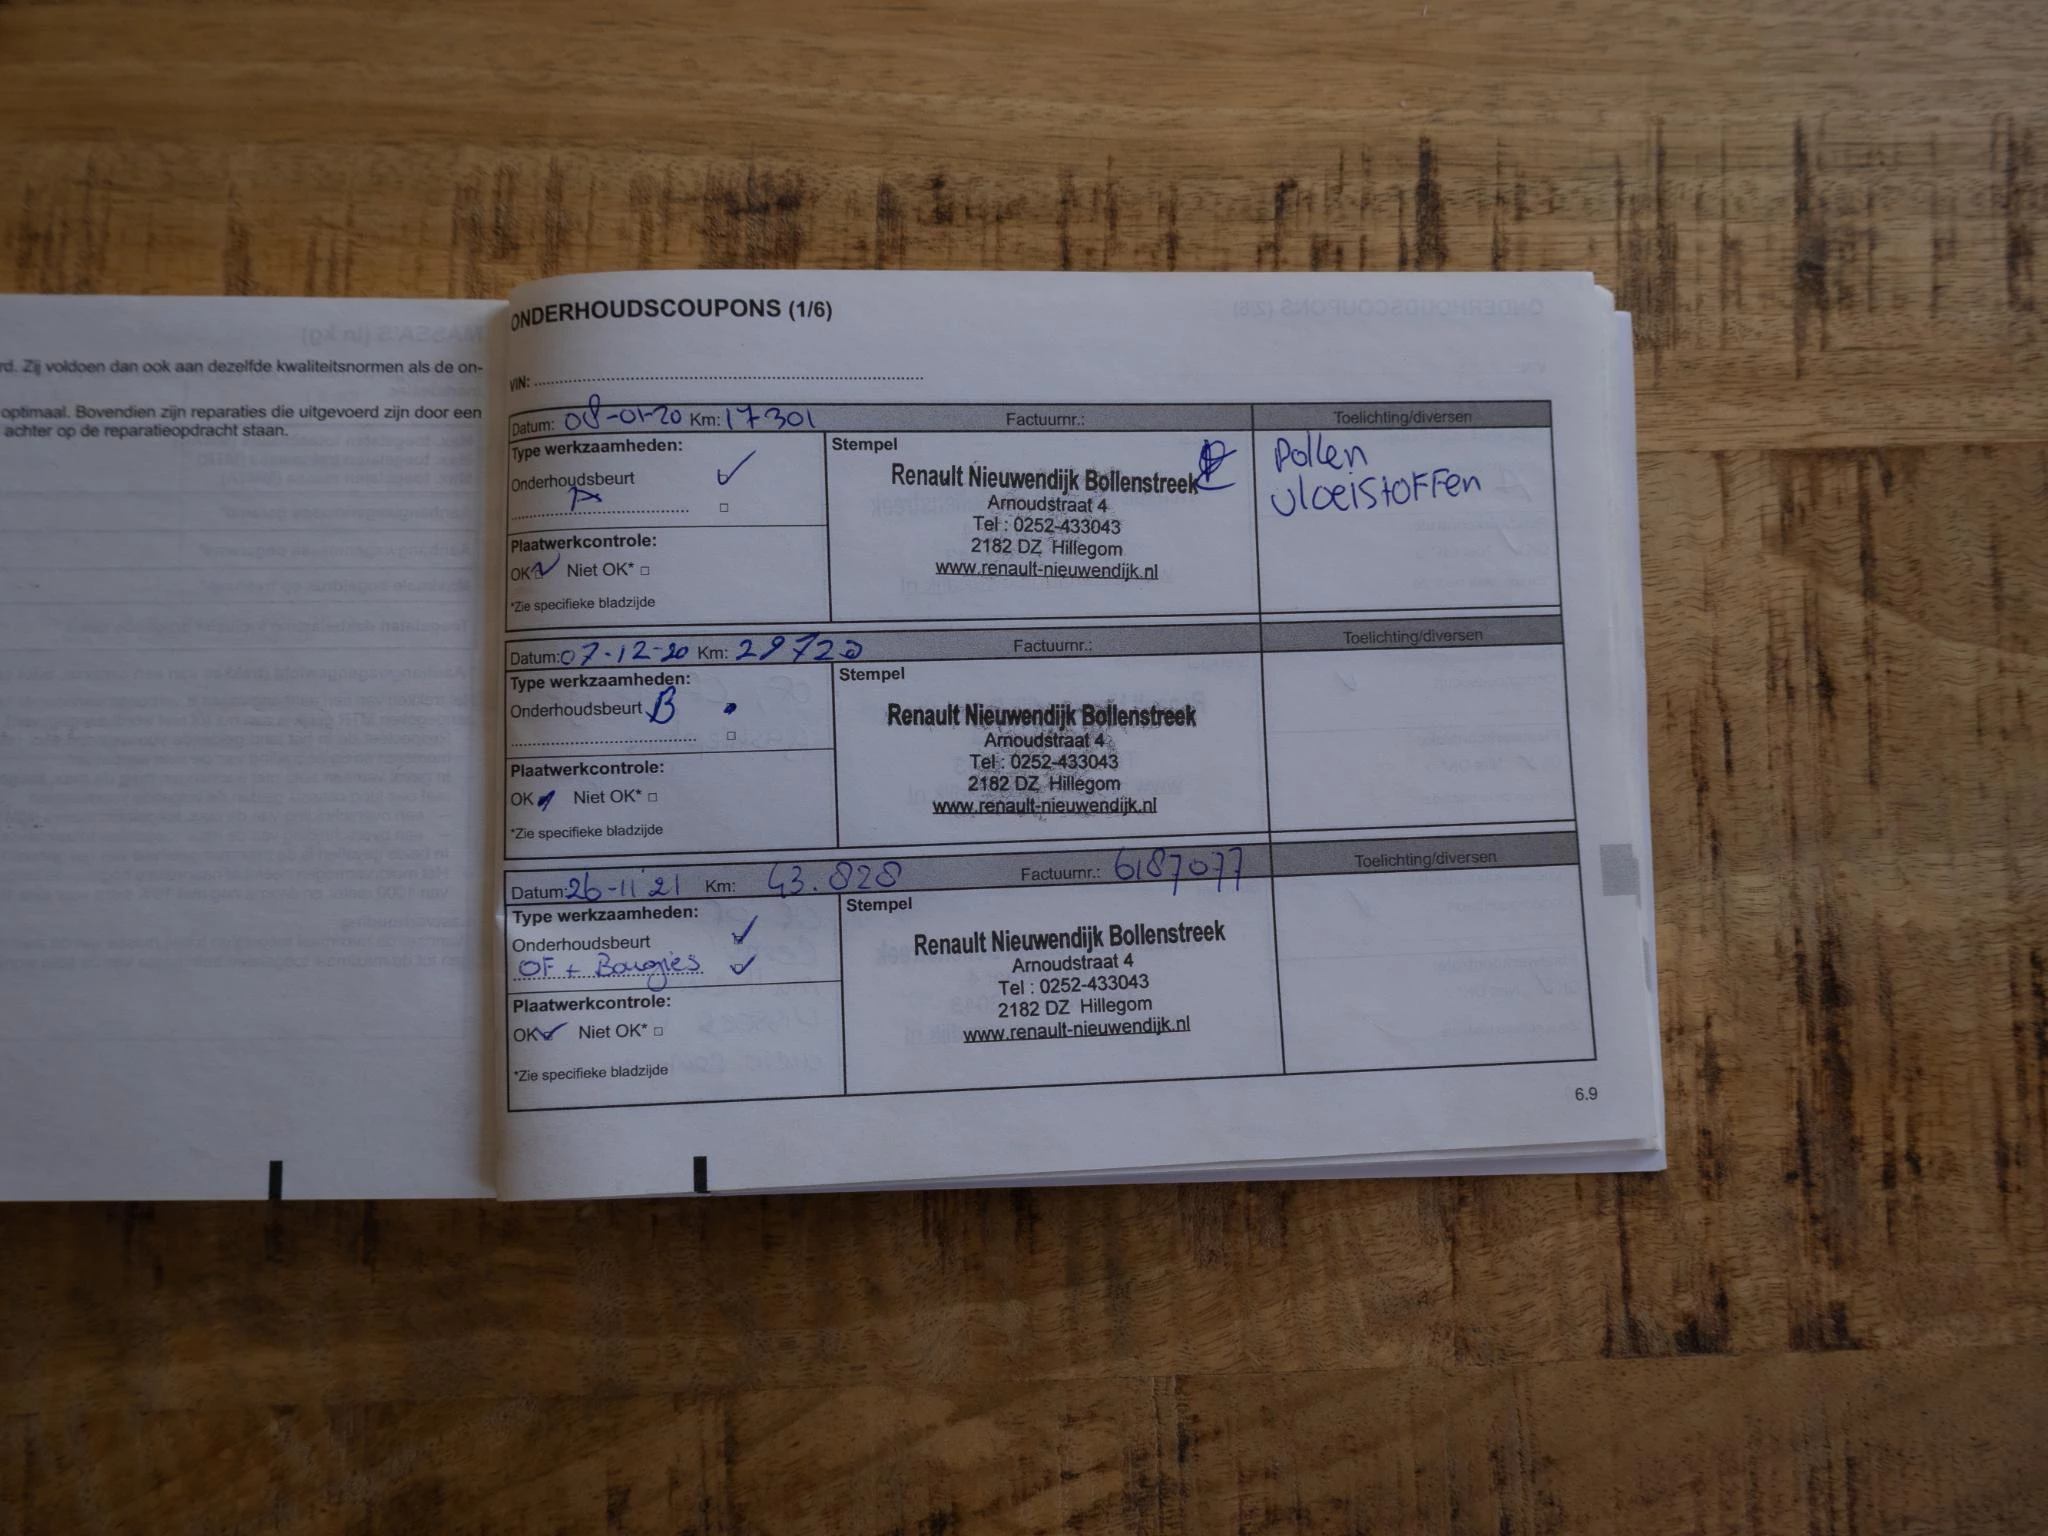 rd. Zij voldoen dan ook aan dezelfde kwaliteitsnormen als de on-
optimaal. Bovendien zijn reparaties die uitgevoerd zijn door een
achter op de reparatieopdracht staan.
ONDERHOUDSCOUPONS (1/6)
VIN:
Datum: 08-01-20 Km: 17301 Factuurnr.: Toelichting/diversen
Type werkzaamheden:
Onderhoudsbeurt
A
Plaatwerkcontrole:
OK Niet OK*
*Zie specifieke bladzijde
Stempel
Renault Nieuwendijk Bollenstreek
Arnoudstraat 4
Tel : 0252-433043
2182 DZ Hillegom
www.renault-nieuwendijk.nl
Pollen
vloeistoffen
Datum: 07-12-20 Km: 29720 Factuurnr.: Toelichting/diversen
Type werkzaamheden:
Onderhoudsbeurt B
Plaatwerkcontrole:
OK Niet OK*
*Zie specifieke bladzijde
Stempel
Renault Nieuwendijk Bollenstreek
Arnoudstraat 4
Tel : 0252-433043
2182 DZ Hillegom
www.renault-nieuwendijk.nl
Datum: 26-11'21 Km: 43.828 Factuurnr.: 6187077 Toelichting/diversen
Type werkzaamheden:
Onderhoudsbeurt
OF + Bougies
Plaatwerkcontrole:
OK Niet OK*
*Zie specifieke bladzijde
Stempel
Renault Nieuwendijk Bollenstreek
Arnoudstraat 4
Tel : 0252-433043
2182 DZ Hillegom
www.renault-nieuwendijk.nl
6.9